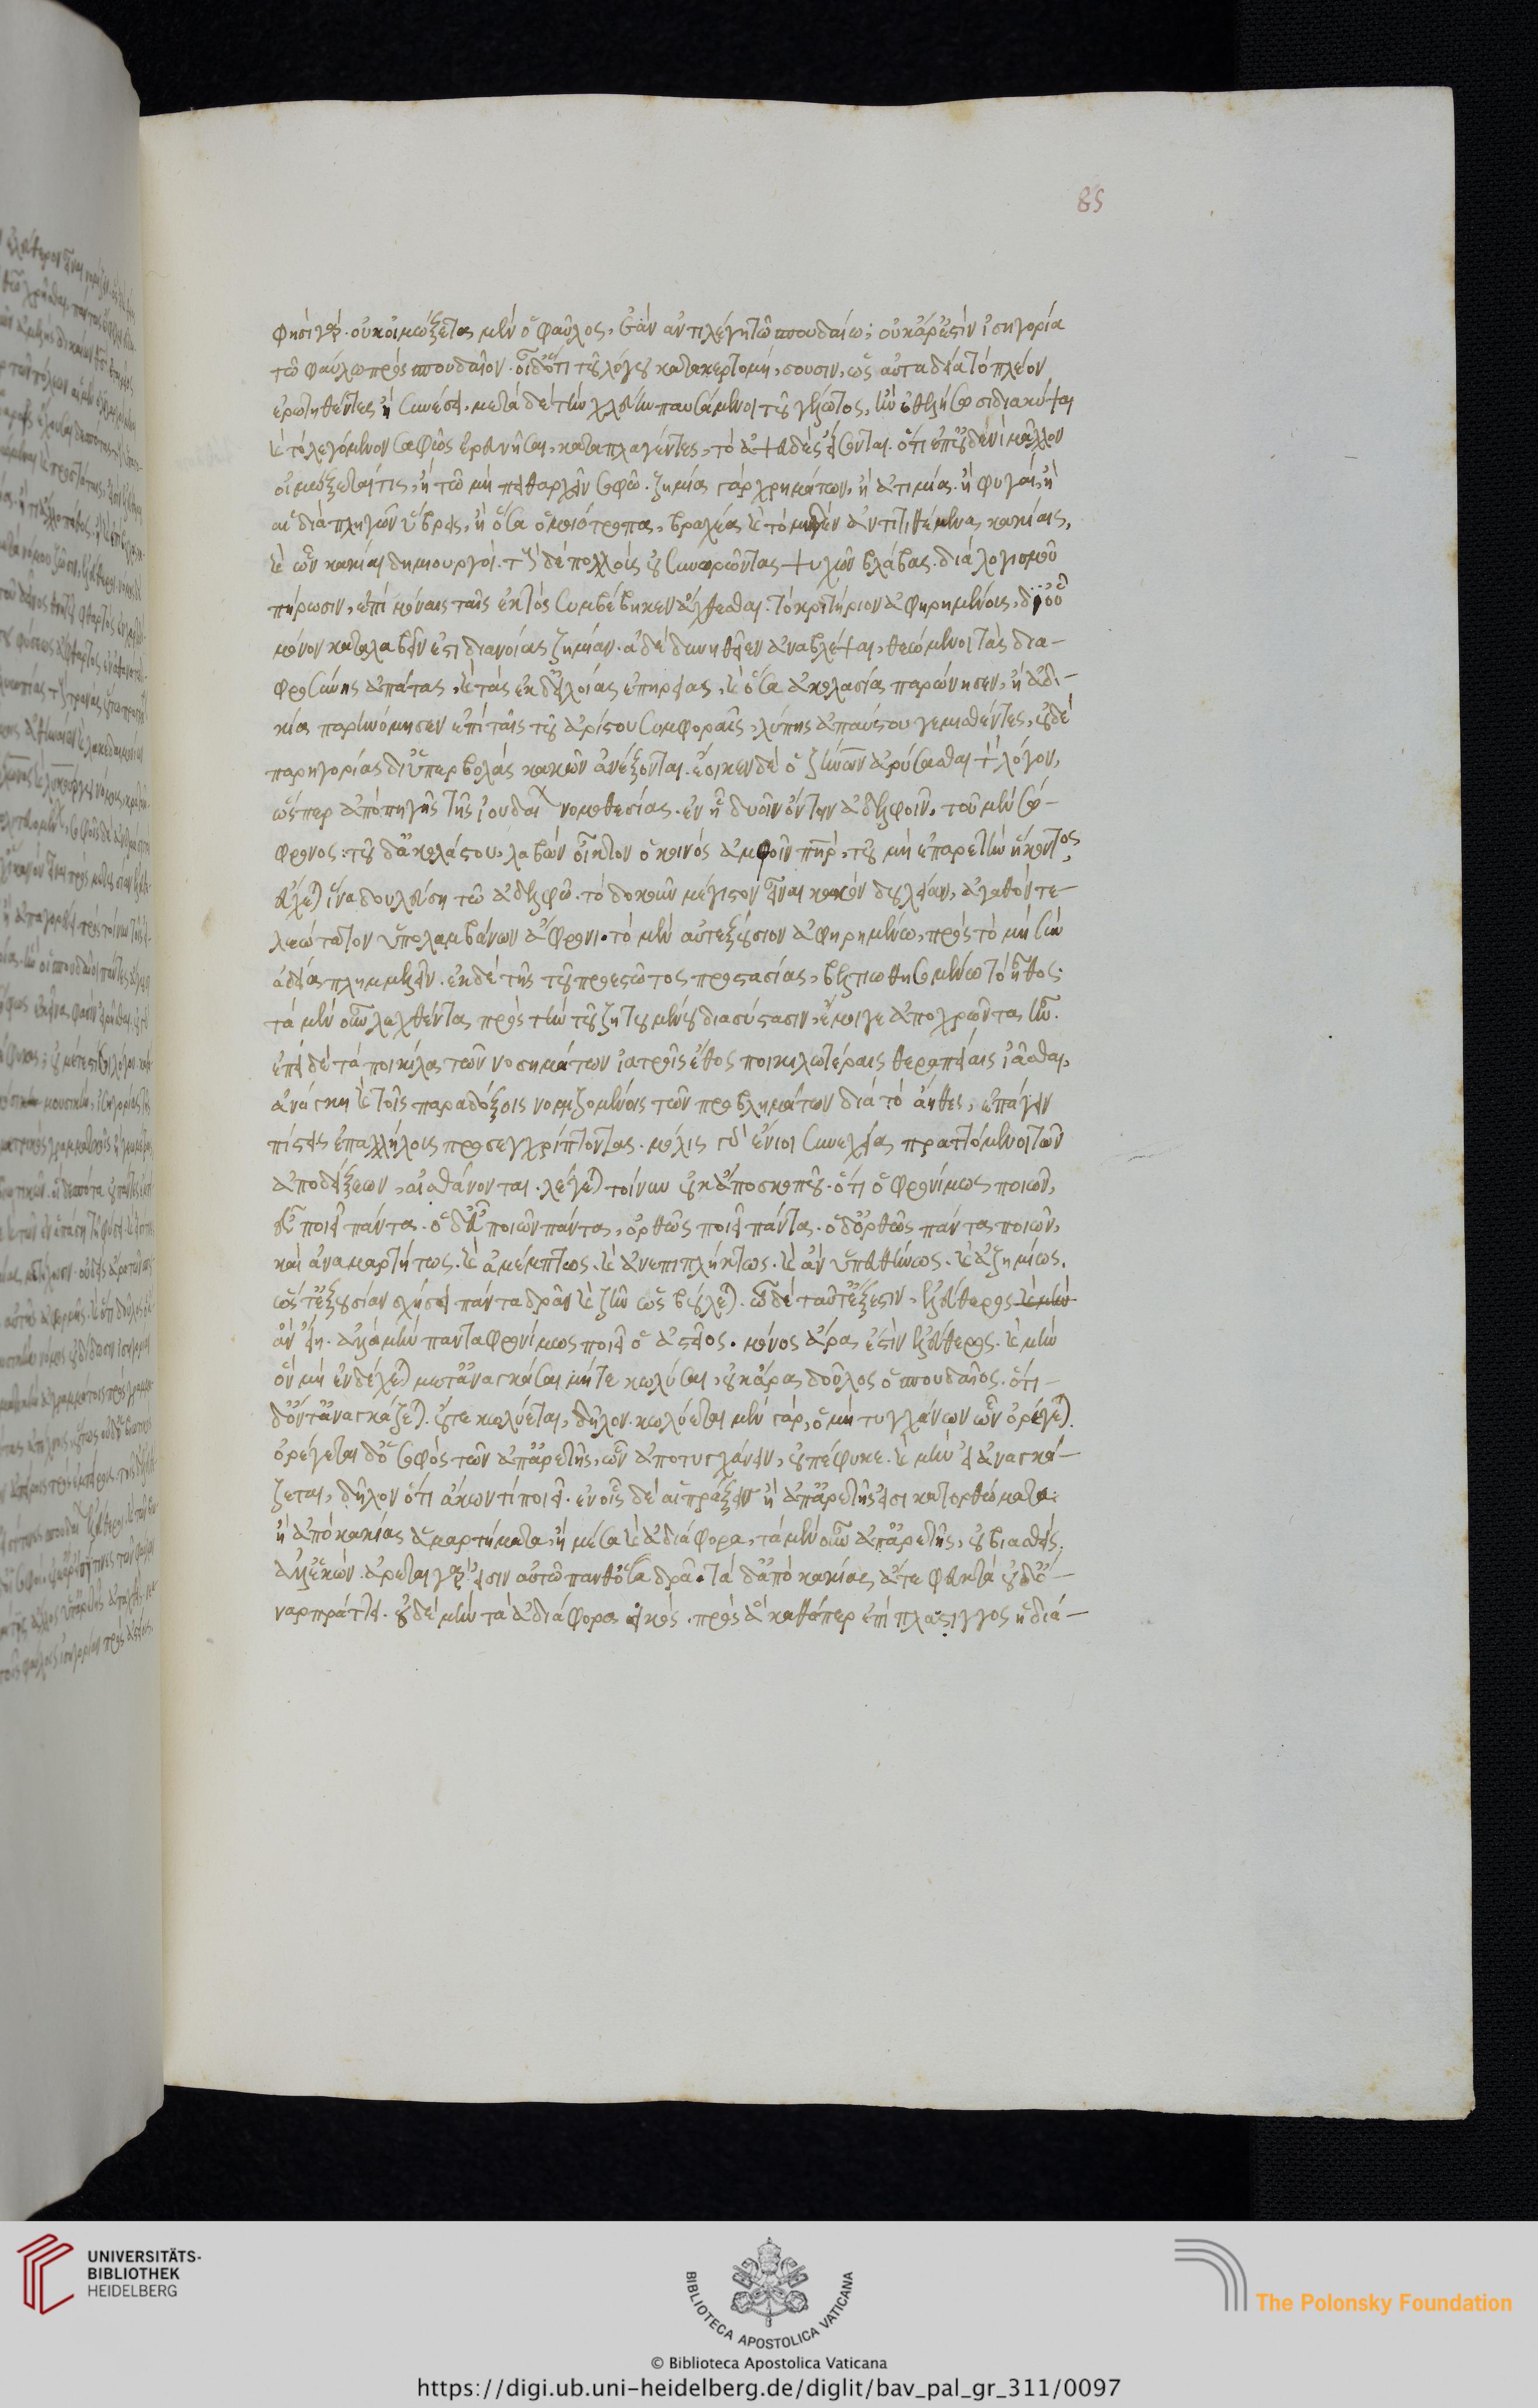 85
φησὶ γὰρ. οὐκ οἰμώξεται μὲν ὁ φαῦλος, ἐὰν ἀντιλέγη τῶ σπουδαίω; οὐκ ἄρ' ἐστὶν ἰσηγορία
τῶ φαύλω πρὸς σπουδαῖον. οἶδ' ὅτι τοῦ λόγου κατακερτομήσουσιν, ὡς αὐτα δεία τὸ πλέον
ἐρωτηθέντες ἢ συνέσει. μετὰ δὲ τὴν χλεύην παυσάμενοι τοῦ γέλωτος, ἢν ἐθελήσωσι διακύψαι
καὶ τὸ λεγόμενον σαφῶς ἐρευνῆσαι, καταπλαγέντες, τὸ ἀψευδὲς εἴσονται. ὅτι ἐπ' οὐδενὶ μᾶλλον
οἰμώξεταί τις, ἢ τῶ μὴ πειθαρχεῖν σοφῶ. ζημίαι γὰρ χρημάτων, ἢ ἀτιμίαι. ἢ φυγαὶ, ἢ
αἱ διὰ πληγῶν ὕβρεις, ἢ ὅσα ὁμοιότροπα, βραχέα καὶ τὸ μηδὲν ἀντιτιθέμενα κακίαις,
καὶ ὧν κακίαι δημιουργοί. τοῖς δὲ πολλοῖς οὐ συνορῶντας ψυχῶν βλάβας. διὰ λογισμοῦ
πήρωσιν, ἐπὶ μόναις ταῖς ἐκτὸς συμβέβηκεν ἄχθεσθαι. τὸ κριτήριον ἀφηρημένοις,
μόνον καταλαβεῖν ἔστι διανοίας ζημίαν. εἰ δὲ δυνηθεῖεν ἀναβλέψαι, θεώμενοι τὰς δια-
φροσύνης ἀπάτας, καὶ τὰς ἐκ δειλίας ἐπηρείας, καὶ ὅσα ἀκολασία παρώνησεν, ἢ ἀδι-
κία παρηνόμησεν ἐπὶ ταῖς τοῦ ἀρίστου συμφοραῖς, λύπης ἀπαύστου γεμισθέντες, οὐδὲ
παρηγορίας δι' ὑπερβολὰς κακῶν ἀνέξονται. ἔοικεν δὲ ὁ ζήνων ἀρύσασθαι τὸν λόγον,
ὥσπερ ἀπὸ πηγῆς τῆς ἰουδαίων νομοθεσίας. ἐν ἧ δυοῖν ὄντοιν ἀδελφοῖν, τοῦ μὲν σώ-
φρονος. τοῦ δ' ἀκολάστου, λαβὼν οἶκτον ὁ κοινὸς ἀμφοῖν πατὴρ, τοῦ μὴ ἐπ' ἀρετὴν ἥκοντος,
εὔχεται ἵνα δουλεύση τῶ ἀδελφῶ. τὸ δοκοῦν μέγιστον εἶναι κακὸν δουλείαν, ἀγαθὸν τε-
λεώτατον ὑπολαμβάνων ἄφρονι. τὸ μὲν αὐτεξούσιον ἀφηρημένω, πρὸς τὸ μὴ σὺν
ἀδεία πλημμελεῖν. ἐκ δὲ τῆς τοῦ προεστῶτος προστασίας, βελτιωθησομένω τὸ ἦθος.
τὰ μὲν οὖν λεχθέντα πρὸς τὴν τοῦ ζητουμένου διασύστασιν, ἔμοιγε ἀποχρῶντα ἦν.
ἐπεὶ δὲ τὰ ποικίλα τῶν νοσημάτων ἰατροῖς ἔθος ποικιλωτέραις θεραπείαις ἰᾶσθαι,
ἀνάγκη καὶ τοῖς παραδόξοις νομιζομένοις τῶν προβλημάτων διὰ τὸ ἄηθες, ἐπάγειν
πίστεις ἐπαλλήλοις προσεγχρίπτοντας. μόλις γὰρ ἔνιοι συνεχεία πραττόμενοι τῶν
ἀποδείξεων, αἰσθάνονται. λέγεται τοίνυν οὐκ ἀπὸ σκοποῦ. ὅτι ὁ φρονίμως ποιῶν,
εὖ ποιεῖ πάντα. ὁ δ' εὖ ποιῶν πάντα, ὀρθῶς ποιεῖ πάντα. ὁ δ' ὀρθῶς πάντα ποιῶν,
καὶ ἀναμαρτήτως. καὶ ἀμέμπτως. καὶ ἀνεπιπλήκτως. καὶ ἀνυπευθύνως. καὶ ἀζημίως.
ὥστ' ἐξουσίαν σχήσει πάντα δρᾶν καὶ ζῆν ὡς βούλεται. ὧ δὲ ταῦτ' ἔξεστιν, ἐλεύθερος
ἂν εἴη. ἀλλὰ μὴν πάντα φρονίμως ποιεῖ ὁ ἀστεῖος. μόνος ἄρα ἐστὶν ἐλεύθερος. καὶ μὴν
ὃν μὴ ἐνδέχεται μήτ' ἀναγκάσαι μήτε κωλῦσαι, οὐκ ἄρα δοῦλος ὁ σπουδαῖος. ὅτι
δ' οὔτ' ἀναγκάζεται. οὔτε κωλύεται, δῆλον. κωλύεται μὲν γὰρ, ὁ μὴ τυγχάνων ὧν ὀρέγεται.
ὀρέγεται δ' ὁ σοφὸς τῶν ἀπ' ἀρετῆς, ὧν ἀποτυγχάνειν, οὐ πέφυκε. καὶ μὴν εἰ ἀναγκά-
ζεται, δῆλον ὅτι ἄκων τί ποιεῖ. ἐν οἷς δὲ αἱ πράξεις ἢ ἀπ' ἀρετῆς εἰσι κατορθώματα:
ἢ ἀπὸ κακίας ἁμαρτήματα, ἢ μέσα καὶ ἀδιάφορα, τὰ μὲν οὖν ἀπ' ἀρετῆς, οὐ βιασθεὶς.
ἀλλ' ἑκών. ἀρεταὶ γὰρ εἰσιν αὐτῶ πανθ' ὅσα δρᾶ. τὰ δ' ἀπὸ κακίας ἅτε φευκτὰ οὐδ' ὄ-
ναρ πράττει. οὐδὲ μὴν τὰ ἀδιάφορα εἰκὸς. πρὸς ἃ καθάπερ ἐπὶ πλάστιγγος ἡ διά-
UNIVERSITÄTS-
BIBLIOTHEK
HEIDELBERG
BIBLIOTECA APOSTOLICA VATICANA
The Polonsky Foundation
© Biblioteca Apostolica Vaticana
https://digi.ub.uni-heidelberg.de/diglit/bav_pal_gr_311/0097